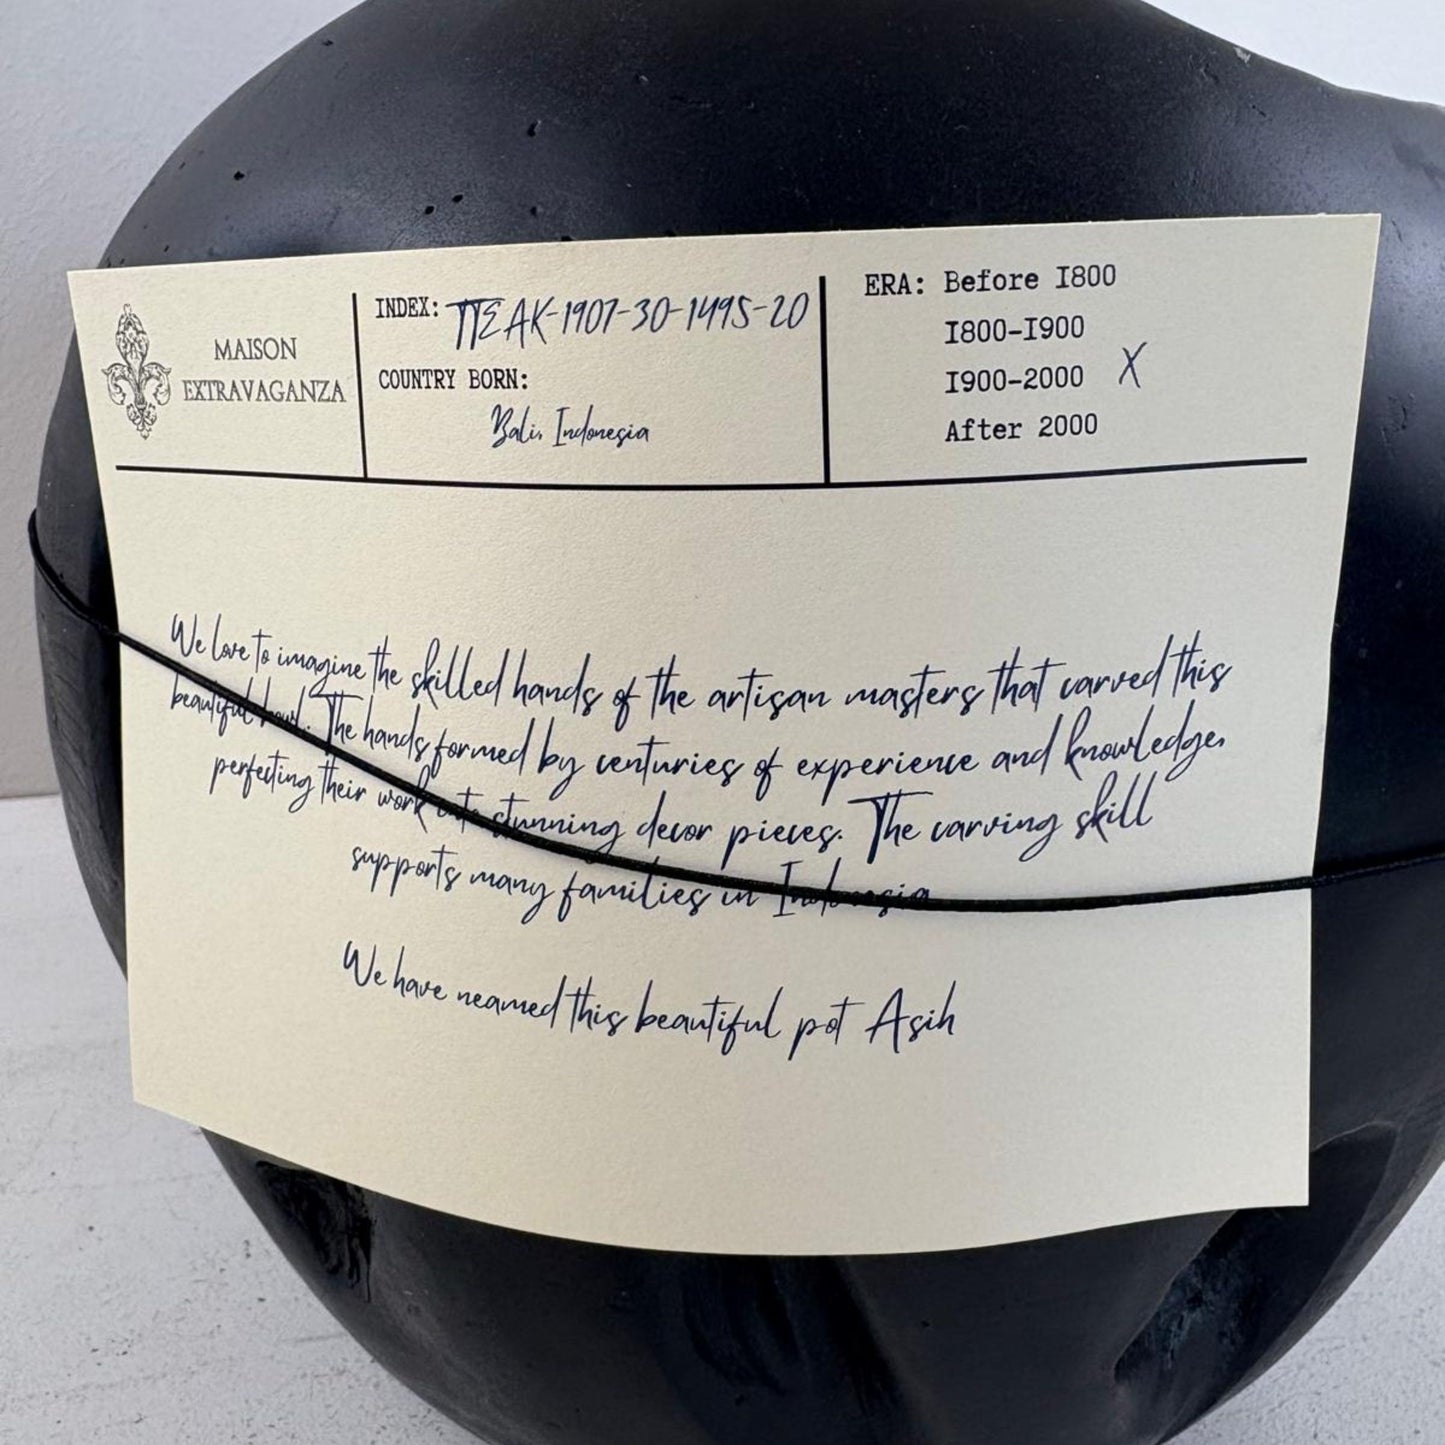 MAISON
EXTRAVAGANZA
INDEX: TTEAK-1907-30-1495-20
COUNTRY BORN:
Bali, Indonesia
ERA: Before I800
I800-I900
I900-2000 X
After 2000
We love to imagine the skilled hands of the artisan masters that carved this
beautiful bowl. The hands formed by centuries of experience and knowledge,
perfecting their work into stunning decor pieces. The carving skill
supports many families in Indonesia
We have neamed this beautiful pot Asih